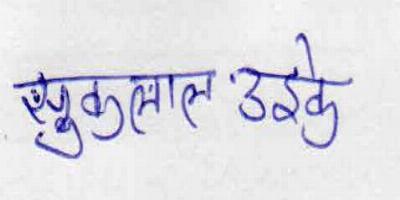 सुकलाल उइके